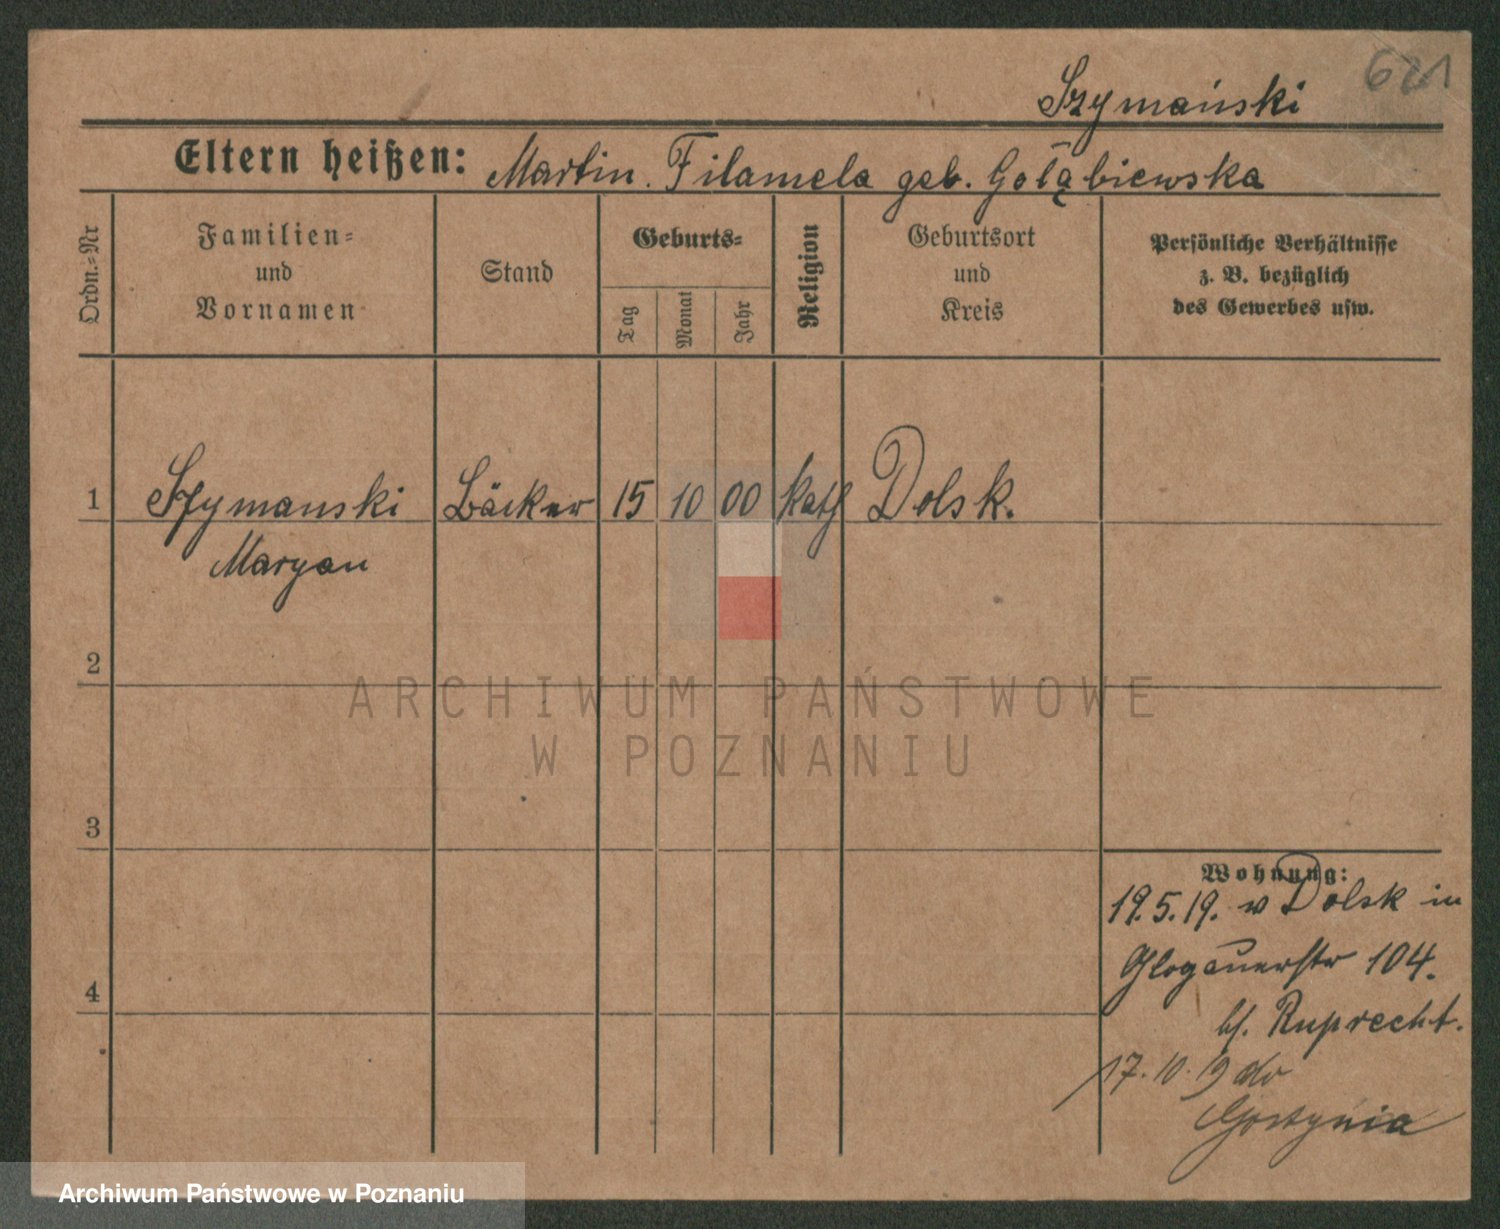 621
Szymański
Eltern heißen: Martin. Filamela geb. Gołąbiewska
Ordn.=Nr
Familien=
und
Vornamen
Stand
Geburts=
Tag
Monat
Jahr
Religion
Geburtsort
und
Kreis
Persönliche Verhältnisse
z. B. bezüglich
des Gewerbes usw.
1 Szymanski Bäcker 15 10 00 kath Dolsk.
Maryan
2
3
4
Wohnung:
19.5.19. v Dolsk in
Glogauerstr 104.
bf. Ruprecht.
17.10.19 do
Gostynia
ARCHIWUM PAŃSTWOWE
W POZNANIU
Archiwum Państwowe w Poznaniu